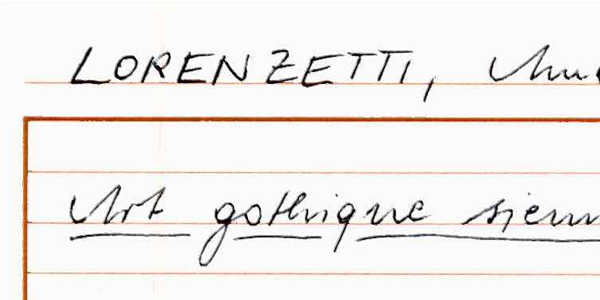 LORENZETTI,
Art gothique sienn